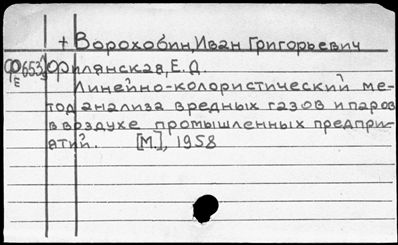 + Ворохобин, Иван Григорьевич
Ф653 Филянская, Е.Д.
Е Линейно-колористический ме-
тод анализа вредных газов и паров
в воздухе промышленных предпри-
ятий. [М.], 1958